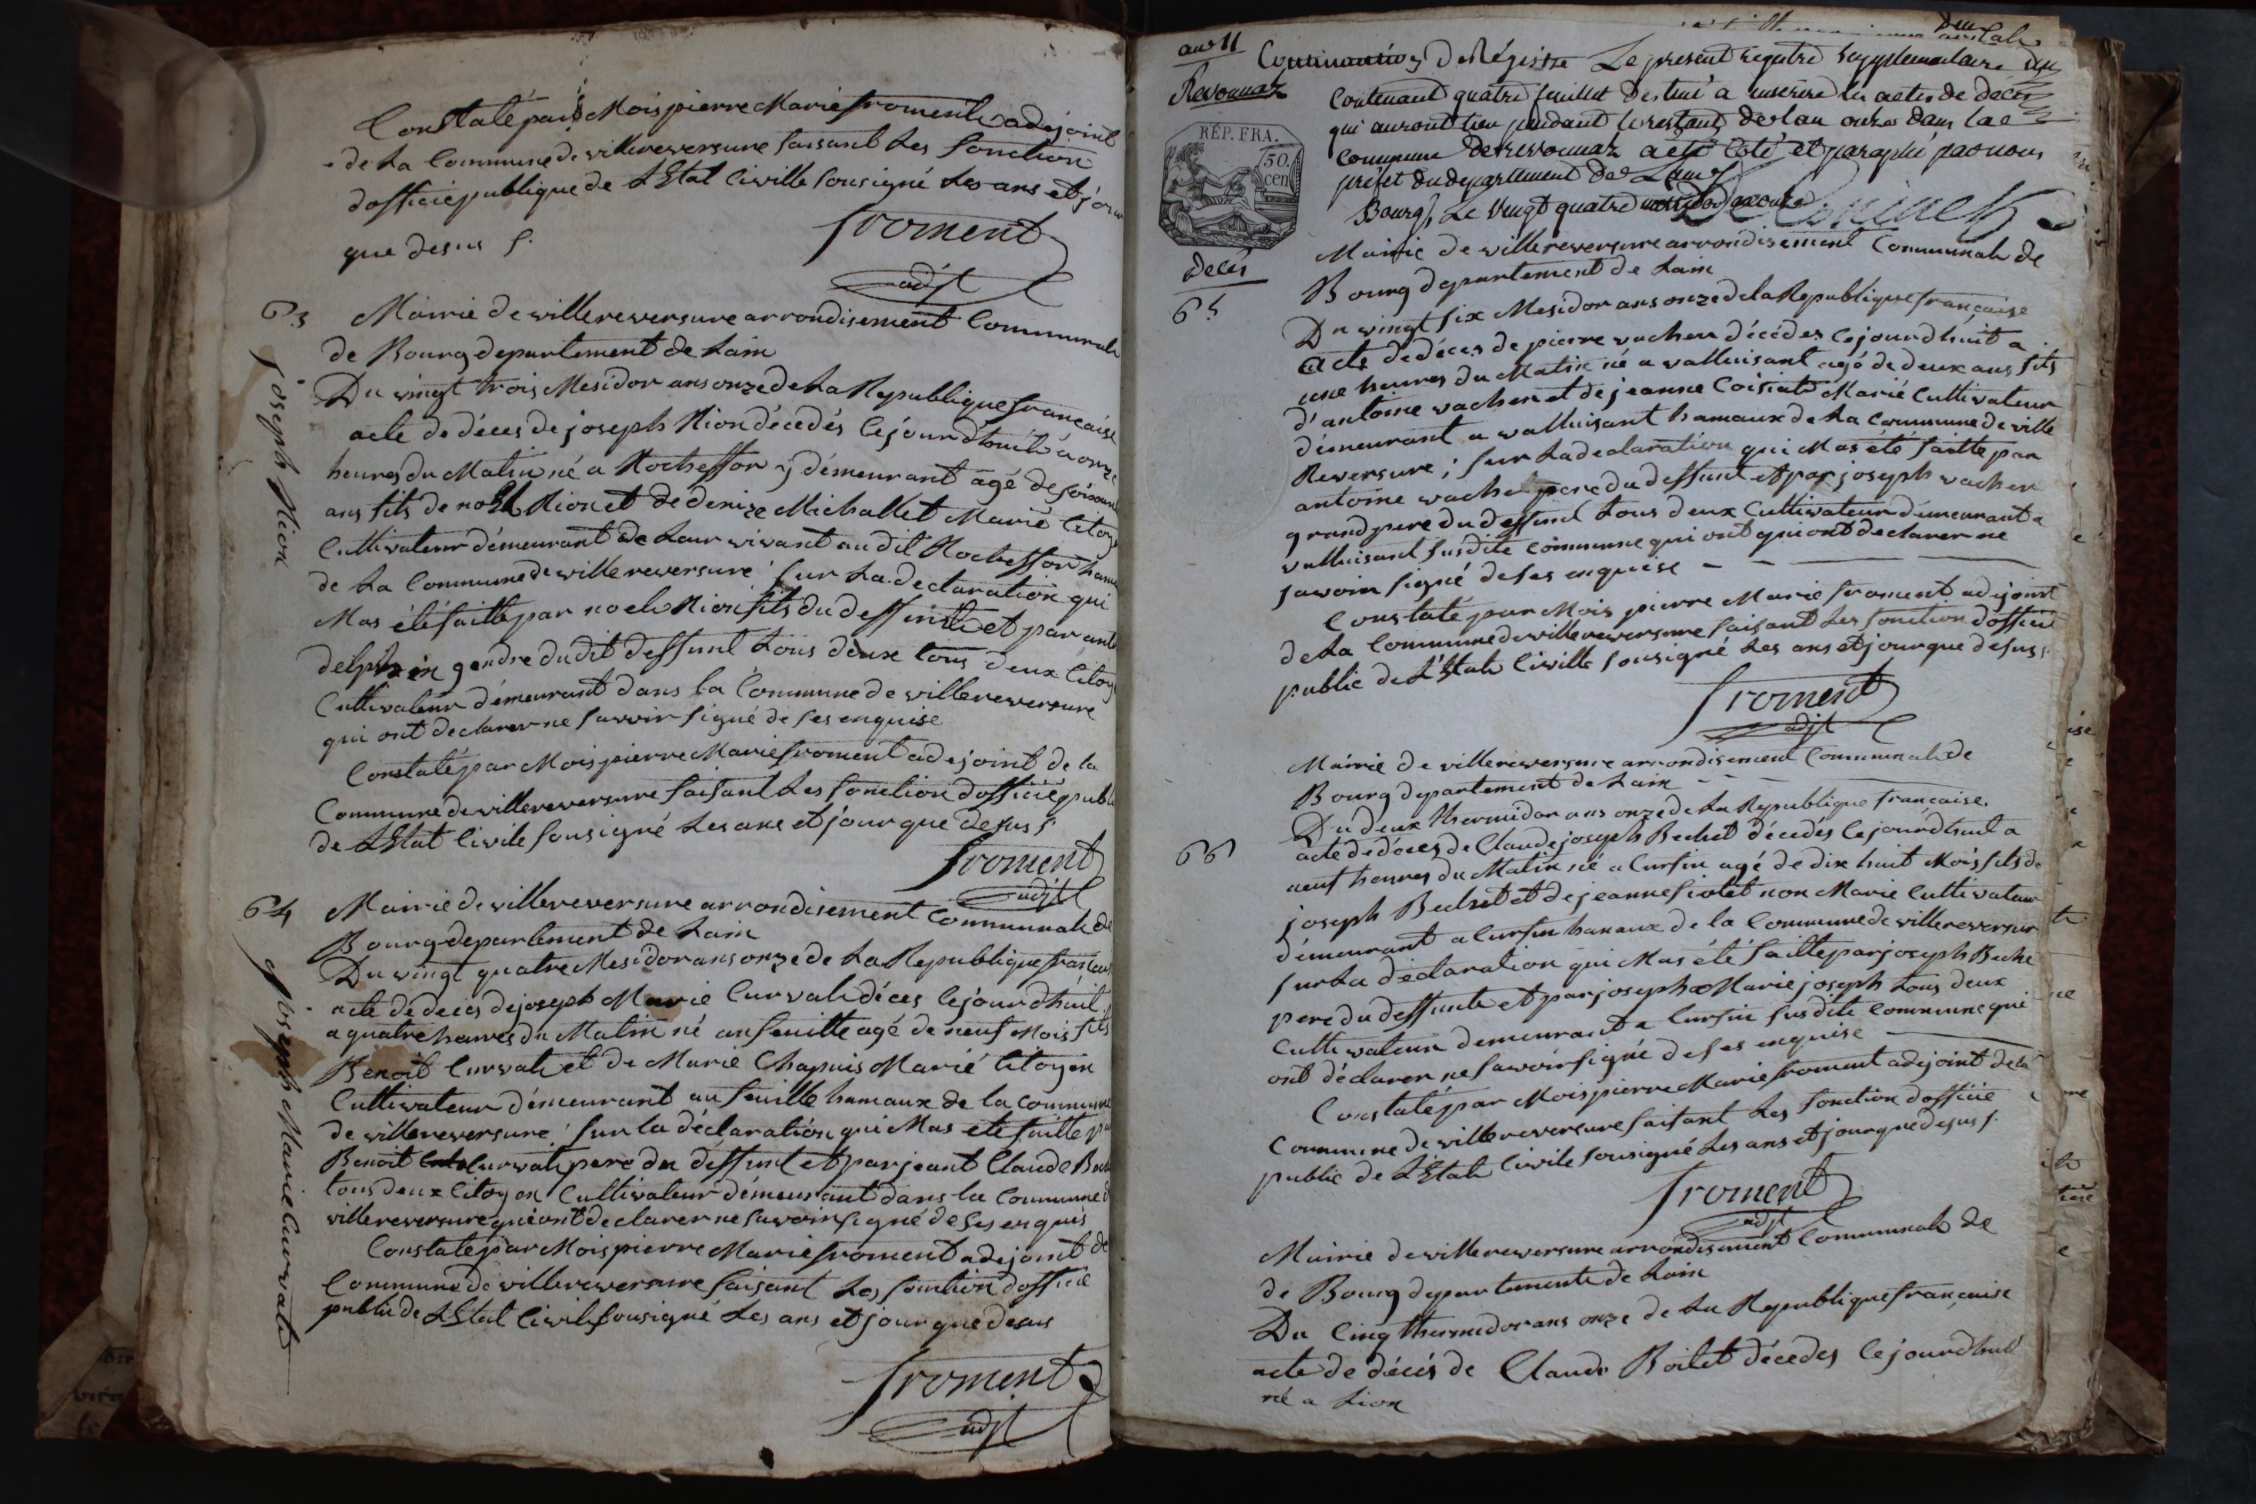 Constaté par Mois pierre Marie froment adejoint
de La Commune de villereversure faisant Les fonction
dofficié publique de LEtat Civille sousigné Les ans et jour
que desus f.
froment
adjt
63
joseph Nion
Mairie de villereversure arrondisement Communale
de Bourg departement de Lain
Du vingt trois Mesidor ans onze de La Republique française
acte de déces de joseph Nion décedés cejourdhuit à onze
heures du Matin né a Rocheffor y démeurant agé de soisante
ans fils de noel Nion et de denize Michallet Marié Citoyen
Cultivateur démeurant de Leur vivant audit Rocheffor
de La Commune de villereversure ; sur La declaration qui
Mas été faitte par noel Nion fils du deffunt et par
delphin gendre dudit deffunt Tous deux tous deux Citoy
Cultivateur démeurant dans La Commune de villereversure
qui ont declarer ne savoir signé de ses enquise
Constaté par Mois pierre Marie froment adejoint de la
Commune de villereversure faisant Les fonction dofficié publi
de LEtat Civile sousigné Les ans et jour que desus f.
froment
adjt
64
joseph Marie Curvat
Mairie de villereversure arrondisement Communale de
Bourg departement de Lain
Du vingt quatre Mesidor ans onze de La Republique française
acte de deces de joseph Marie Curvat déces cejourdhuit
a quatre heures du Matin né au feuille agé de neuf Mois fils
Benoit Curvat et de Marie Chapuis Marié Citoyen
Cultivateur démeurant au feuille hamaux de la commune
de villereversure ; sur la déclaration qui Mas été faitte pa
Benoit Curvat pere du deffunt et par jeant Claude
tous deux Citoyen Cultivateur démeurant dans la Commune d
villereversure qui ont declarer ne savoir signé de ses enquis
Constaté par Mois pierre Marie froment adejoint de
Commune de villereversure faisant Les fonction dofficié
public de LEtat Civile sousigné Les ans et jour que desus
froment
adjt
an 11
Revonnaz
Continuation de Régistre Le present registre supplementaire
Contenant quatre feuillet destiné a inserire les actes de décès
qui auront lieu pendant le restant de lan onze dans la
Commune de revonnaz a eté coté et paraphé par nous
préfet du departement de Lain
Bourg, Le vingt quatre messidor an onze
RÉP. FRA.
50.
cen
décés
65
Mairie de villereversure arrondisement Communale de
Bourg departement de Lain
Du vingt six Mesidor ans onze de la Republique française
acte de déces de pierre vacher décédes cejourdhuit a
une heures du Matin né a valluisant agé de deux ans fils
d'antoine vacher et de jeanne Coisiat Marié Cultivateur
démeurant a valluisant hamaux de La Commune de ville
Reversure ; sur La declaration qui Mas été faitte par
antoine vacher pere du deffunt et par joseph vacher
grand pere du deffunt tous deux Cultivateur démeurant a
valluisant susdite commune qui ont qui ont declarer ne
savoir signé de ses enquise
Constaté par Mois pierre Marie froment adejoint
de La Commune de villereversure faisant Les fonction dofficié
public de LEtat Civille sousigné Les ans et jour que desus f.
froment
adjt
Mairie de villereversure arrondisement Communale de
Bourg departement de Lain
66
Du deux thermidor ans onze de La Republique française.
acte de déces de Claude joseph Bechet décedés cejourdhuit a
neuf heures du Matin né a Cursin agé de dix huit Mois fils de
joseph Bechet et de jeanne fiolet non Marié Cultivateur
démeurant a Cursin hamaux de la Commune de villereversur
sur La déclaration qui Mas été faitte par joseph Beche
pere du deffunte et par joseph Marie joseph tous deux
Cultivateur demeurant a Cursin susdite Commune qui
ont déclarer ne savoir signé de ses enquise
Constaté par Mois pierre Marie froment adejoint de la
Commune de villereversure faisant Les fonction dofficié
public de LEtat Civile sousigné Les ans et jour que desus f.
froment
adjt
Mairie de villereversure arrondisement Communale de
de Bourg departemente de Lain
Du Cinq thermidor ans onze de La Republique française
acte de décés de Claude Boilet décedes cejourdhui
né a Lion